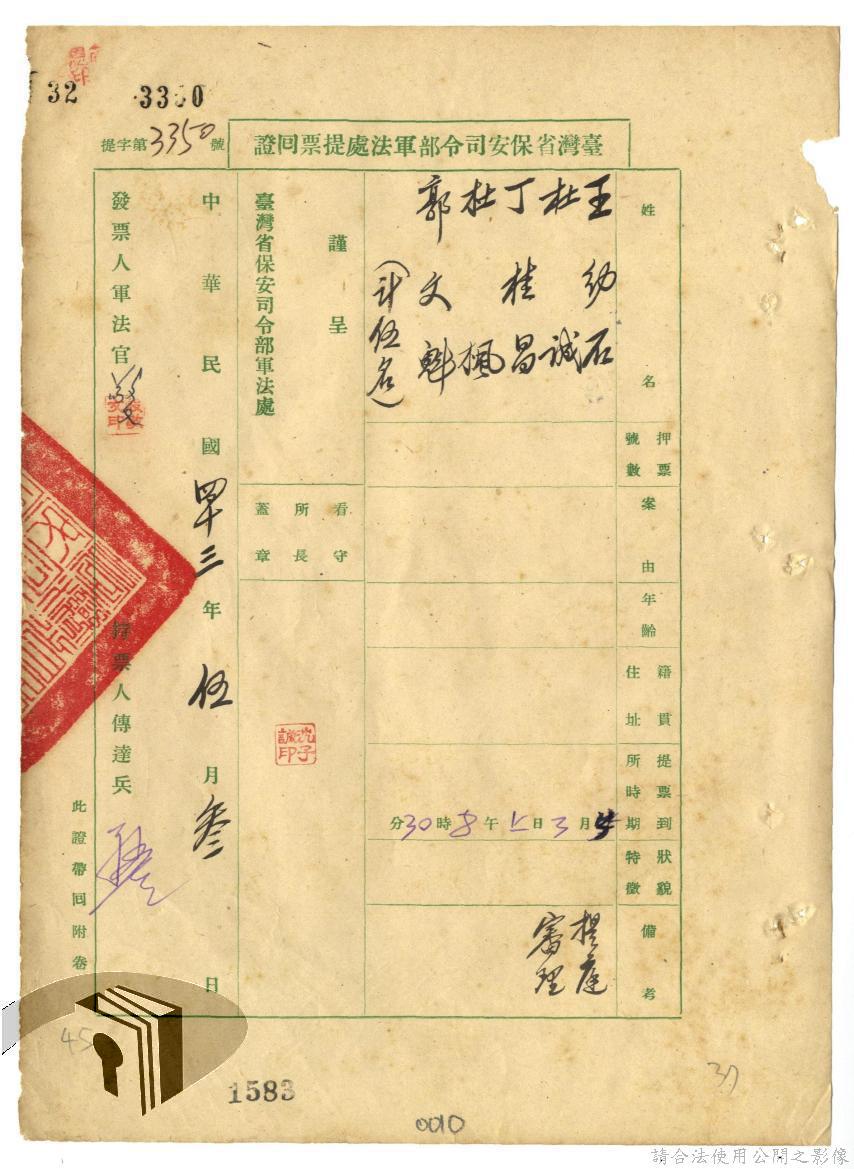 32
3350
臺灣省保安司令部軍法處提票回證
提字第3350號
姓名
王幼石
杜誠
丁桂昌
杜楓
郭文魁
(計伍名)
押票號數
案由
年齡
籍貫住址
提票到所時期
5月3日上午8時30分
狀貌特徵
備考
提庭
審理
謹呈
臺灣省保安司令部軍法處
看守所長蓋章
沈子誠印
中華民國四十三年伍月叁日
發票人軍法官
持票人傳達兵
此證帶回附卷
45
1583
0010
37
請合法使用公開之影像